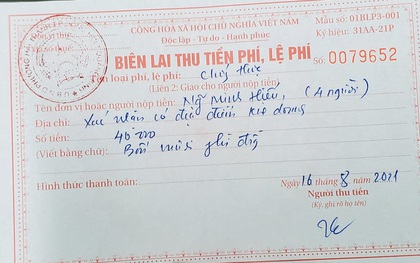 CỘNG HÒA XÃ HỘI CHỦ NGHĨA VIỆT NAM
Độc lập - Tự do - Hạnh phúc
Mẫu số: 01BLP3-001
Ký hiệu: 31AA-21P
BIÊN LAI THU TIỀN PHÍ, LỆ PHÍ
Số: 0079652
Tên loại phí, lệ phí: Chứng thực
(Liên 2: Giao cho người nộp tiền)
Tên đơn vị hoặc người nộp tiền: Minh Hiếu, (4 người)
Địa chỉ: Xác nhận có địa điểm
Số tiền: 40 000
(Viết bằng chữ): Bốn mươi
Hình thức thanh toán:
Ngày 16 tháng 8 năm 2021
Người thu tiền
(Ký, ghi rõ họ tên)